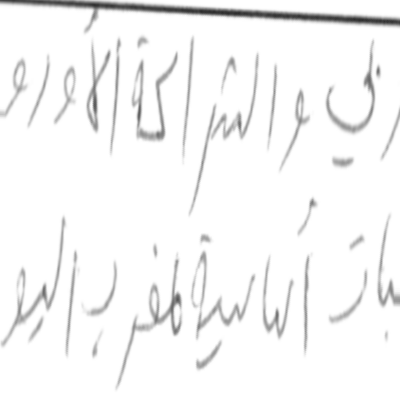 ربي والشراكة الأورو
بات أساسية للمغرب اليو